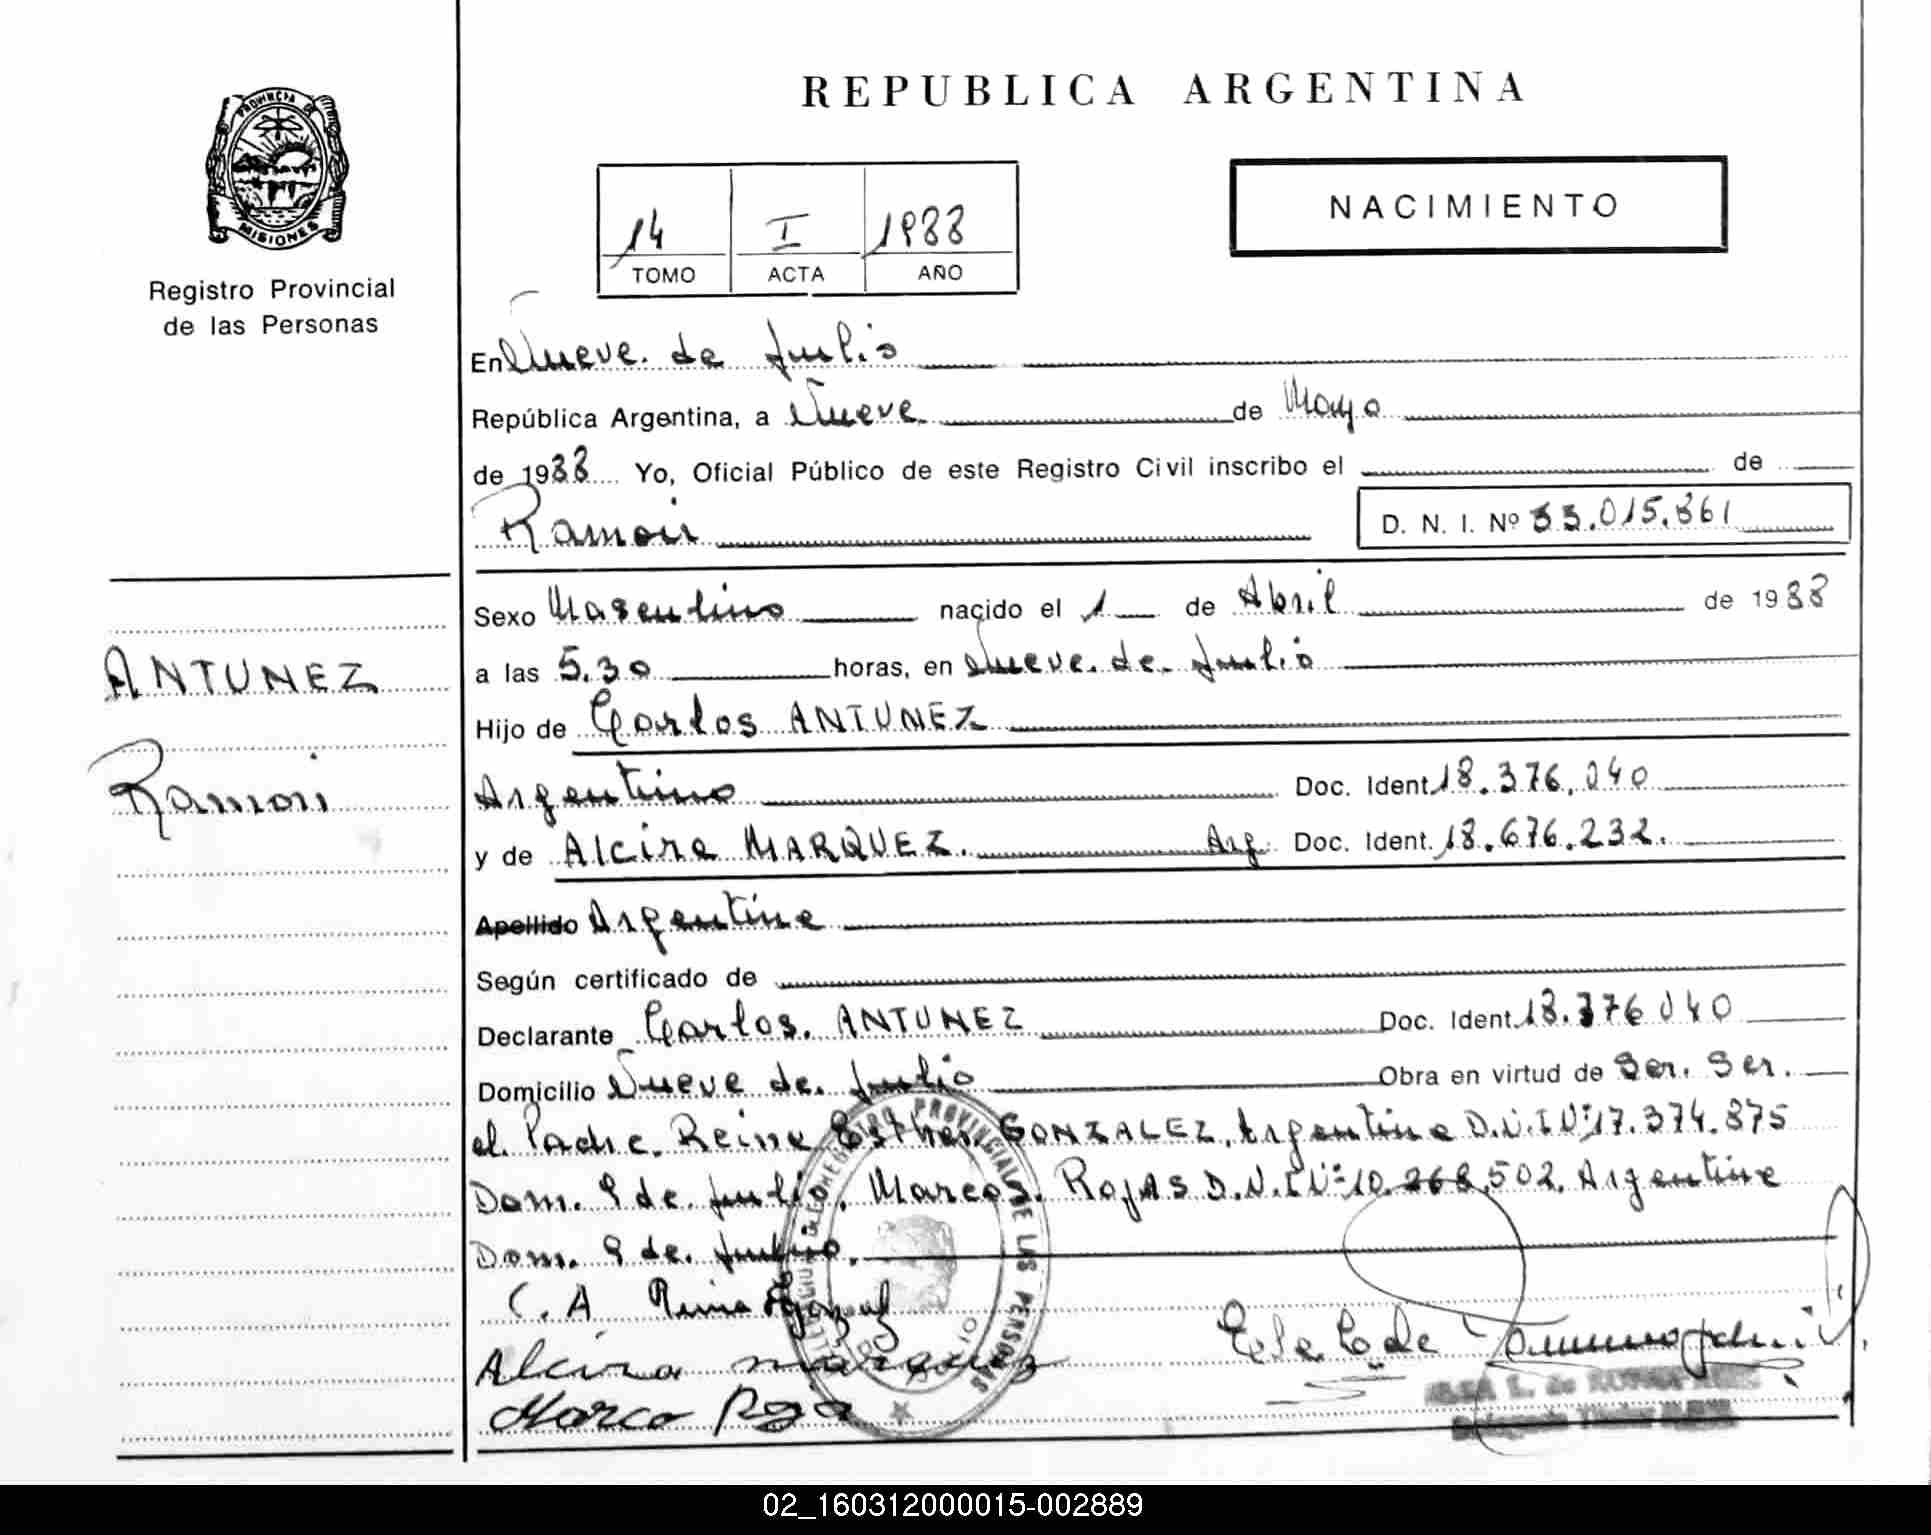 REPUBLICA ARGENTINA
PROVINCIA DE
MISIONES
Registro Provincial
de las Personas
14 I 1988
TOMO ACTA AÑO
NACIMIENTO
En Nueve de Julio
República Argentina, a Nueve de Mayo
de 1988 Yo, Oficial Público de este Registro Civil inscribo el de
Ramón
D. N. I. Nº 33.015.861
Sexo Masculino nacido el 1 de Abril de 1988
ANTUNEZ
Ramón
a las 5.30 horas, en Nueve de Julio
Hijo de Carlos ANTUNEZ
Argentino Doc. Ident. 18.376.040
y de Alcira MARQUEZ. Arg. Doc. Ident. 18.676.232.
Apellido Argentina
Según certificado de
Declarante Carlos. ANTUNEZ Doc. Ident. 18.376 040
Domicilio Nueve de Julio Obra en virtud de Ser. Ser.
el Padre. Reina Esther GONZALEZ, Argentina D.N.I Nº 17.374.875
Dom. 9 de Julio, Marcos. ROJAS D.N.I Nº 10.268.502. Argentine
Dom. 9 de Julio.
REGISTRO PROVINCIAL DE LAS PERSONAS
C. A Reina
Alcira marquez
Marco Roja
02_160312000015-002889